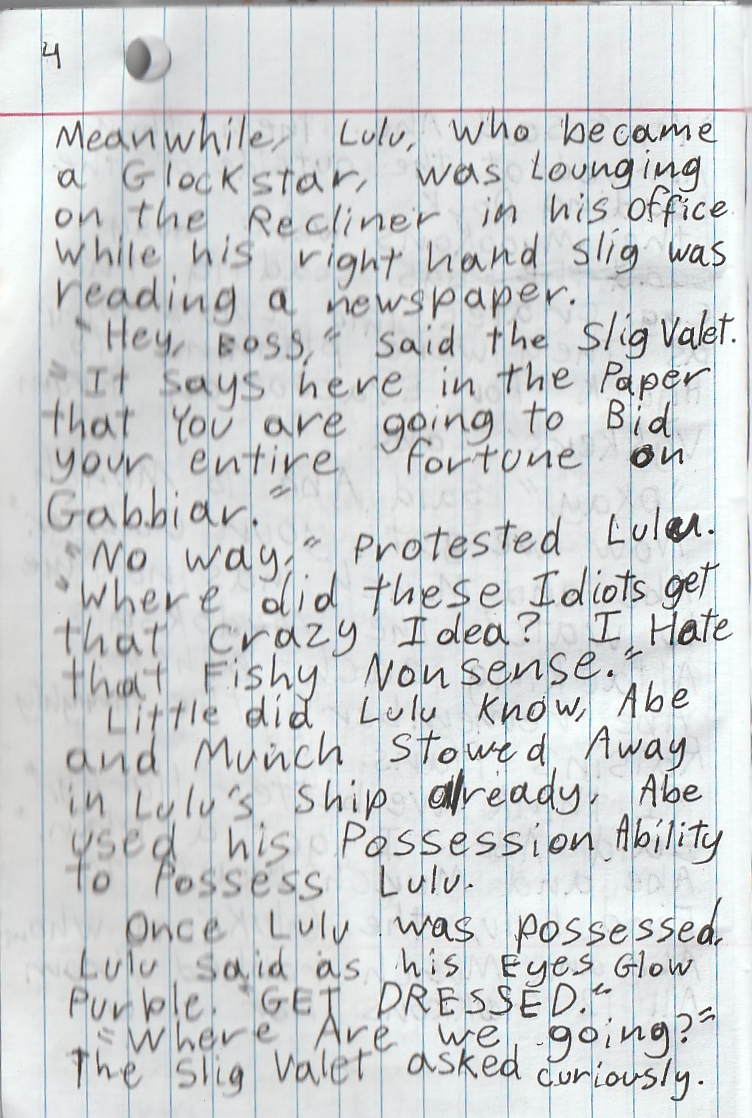 4
Meanwhile, Lulu, who became
a Glockstar, was Lounging
on the Recliner in his office
while his right hand Slig was
reading a newspaper.
"Hey, Boss," said the Slig Valet.
"It says here in the Paper
that You are going to Bid
your entire fortune on
Gabbiar."
"No way," Protested Lulu.
"Where did these Idiots get
that Crazy Idea? I Hate
that Fishy Nonsense."
Little did Lulu Know, Abe
and Munch Stowed Away
in Lulu's Ship already, Abe
used his Possession Ability
to Possess Lulu.
Once Lulu was possessed,
Lulu said as his Eyes Glow
Purple. "GET DRESSED."
"Where Are we going?"
The Slig Valet asked curiously.